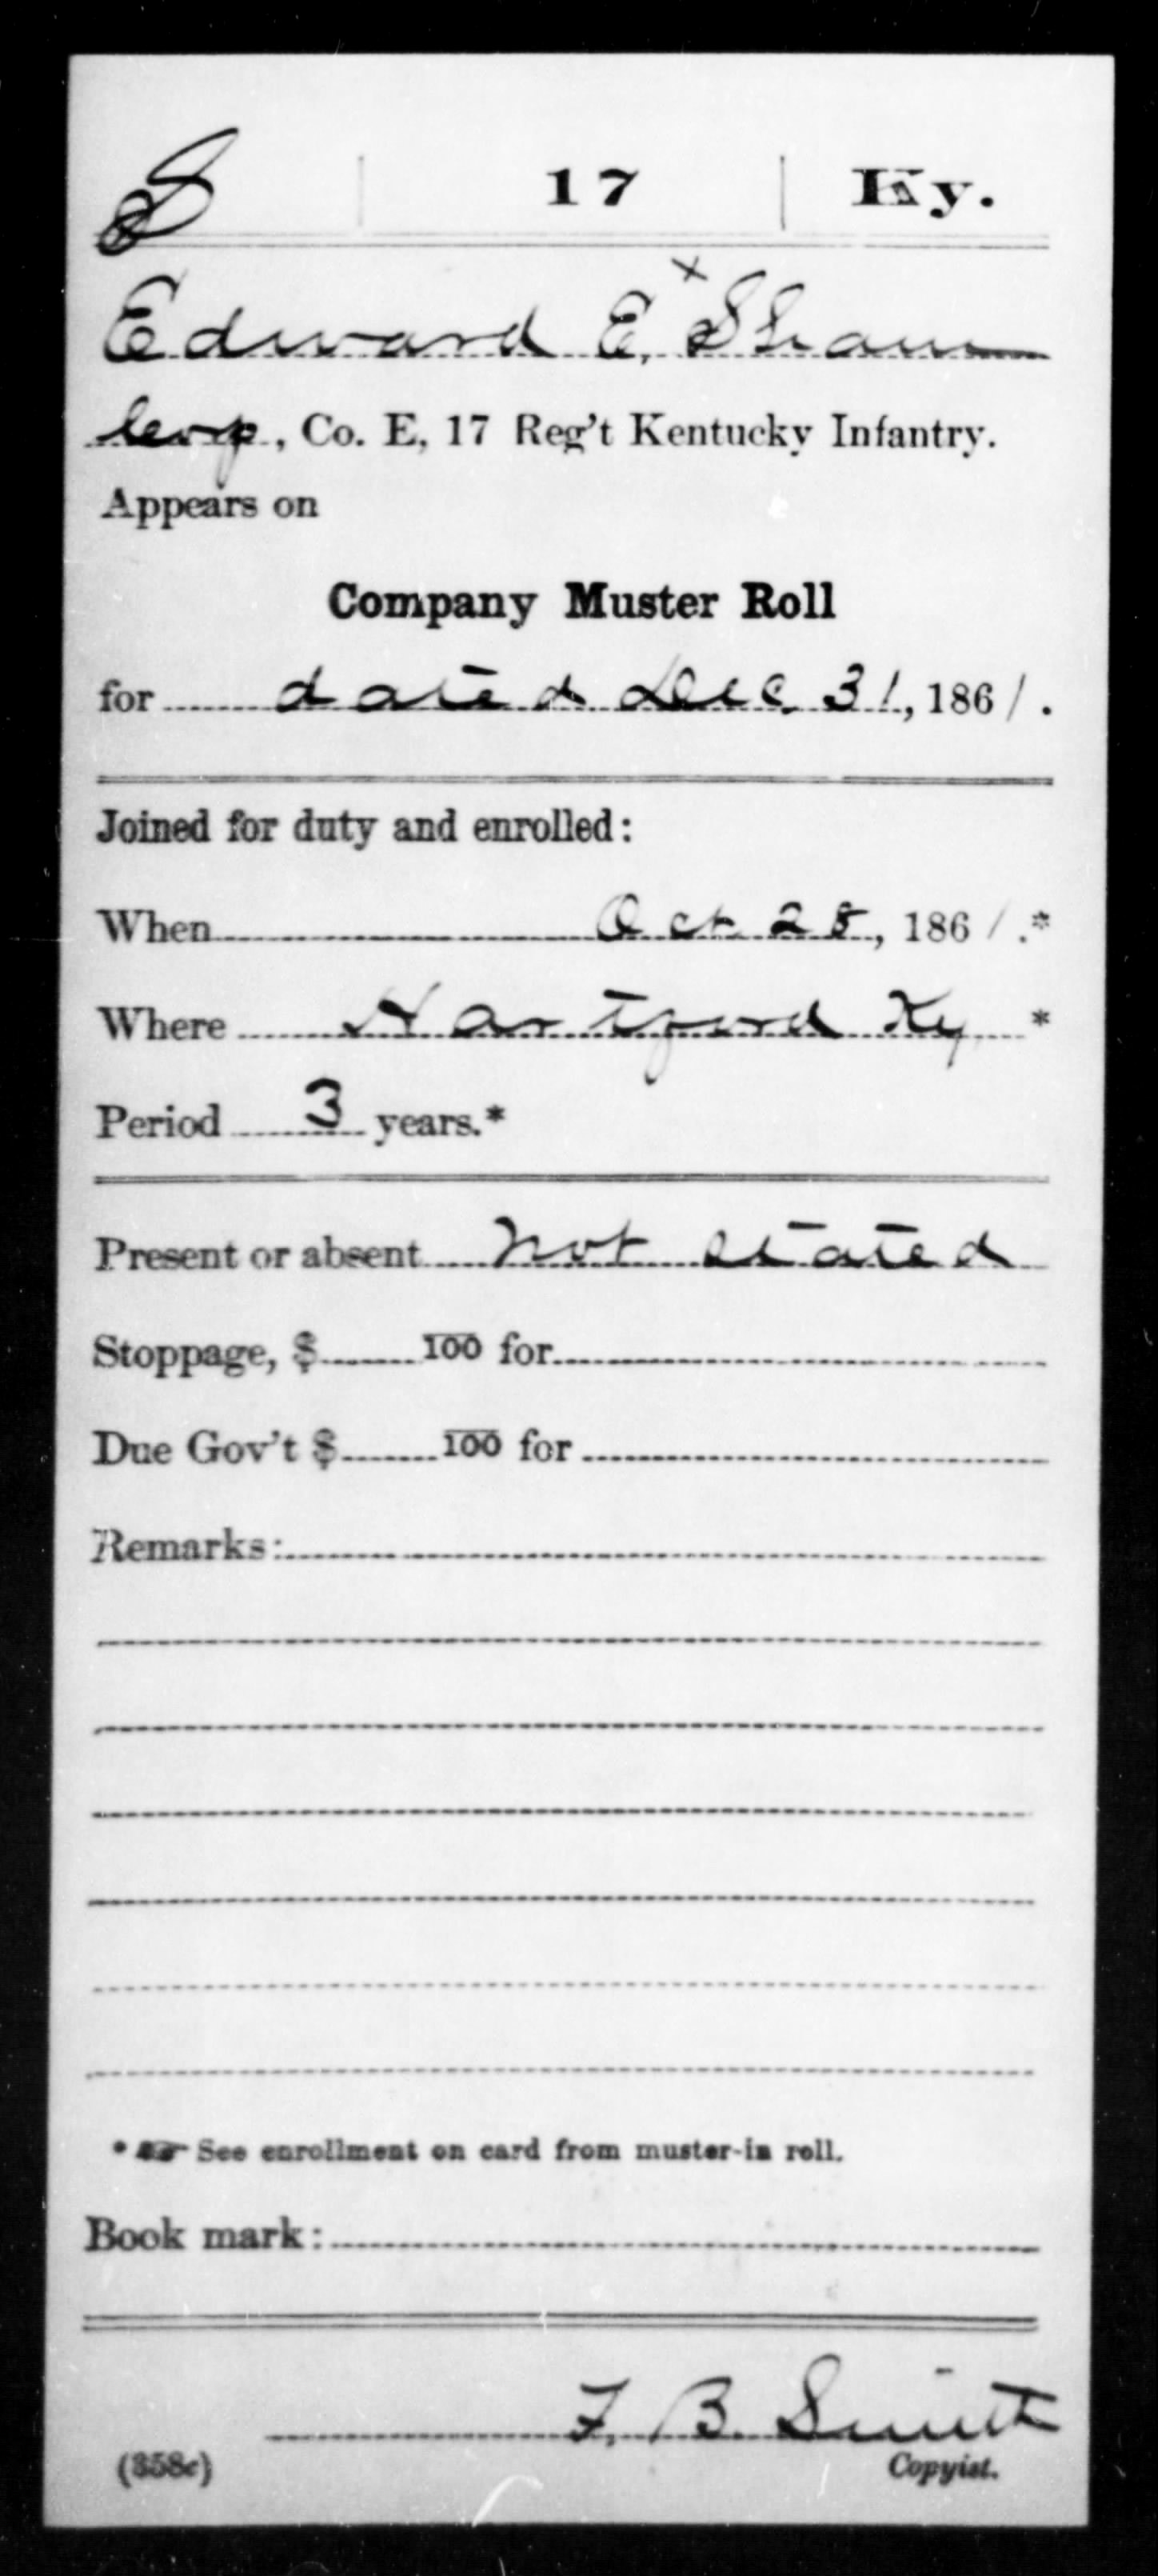 S | 17 | Ky.
x
Edward E. Sham
Corp, Co. E, 17 Reg't Kentucky Infantry.
Appears on
Company Muster Roll
for dated Dec. 31, 1861.
Joined for duty and enrolled:
When Oct 25, 1861.*
Where Hartford Ky *
Period 3 years.*
Present or absent Not stated
Stoppage, $ 100 for
Due Gov't $ 100 for
Remarks:
* ☞ See enrollment on card from muster-in roll.
Book mark:
F. B. Smith
(358c) Copyist.